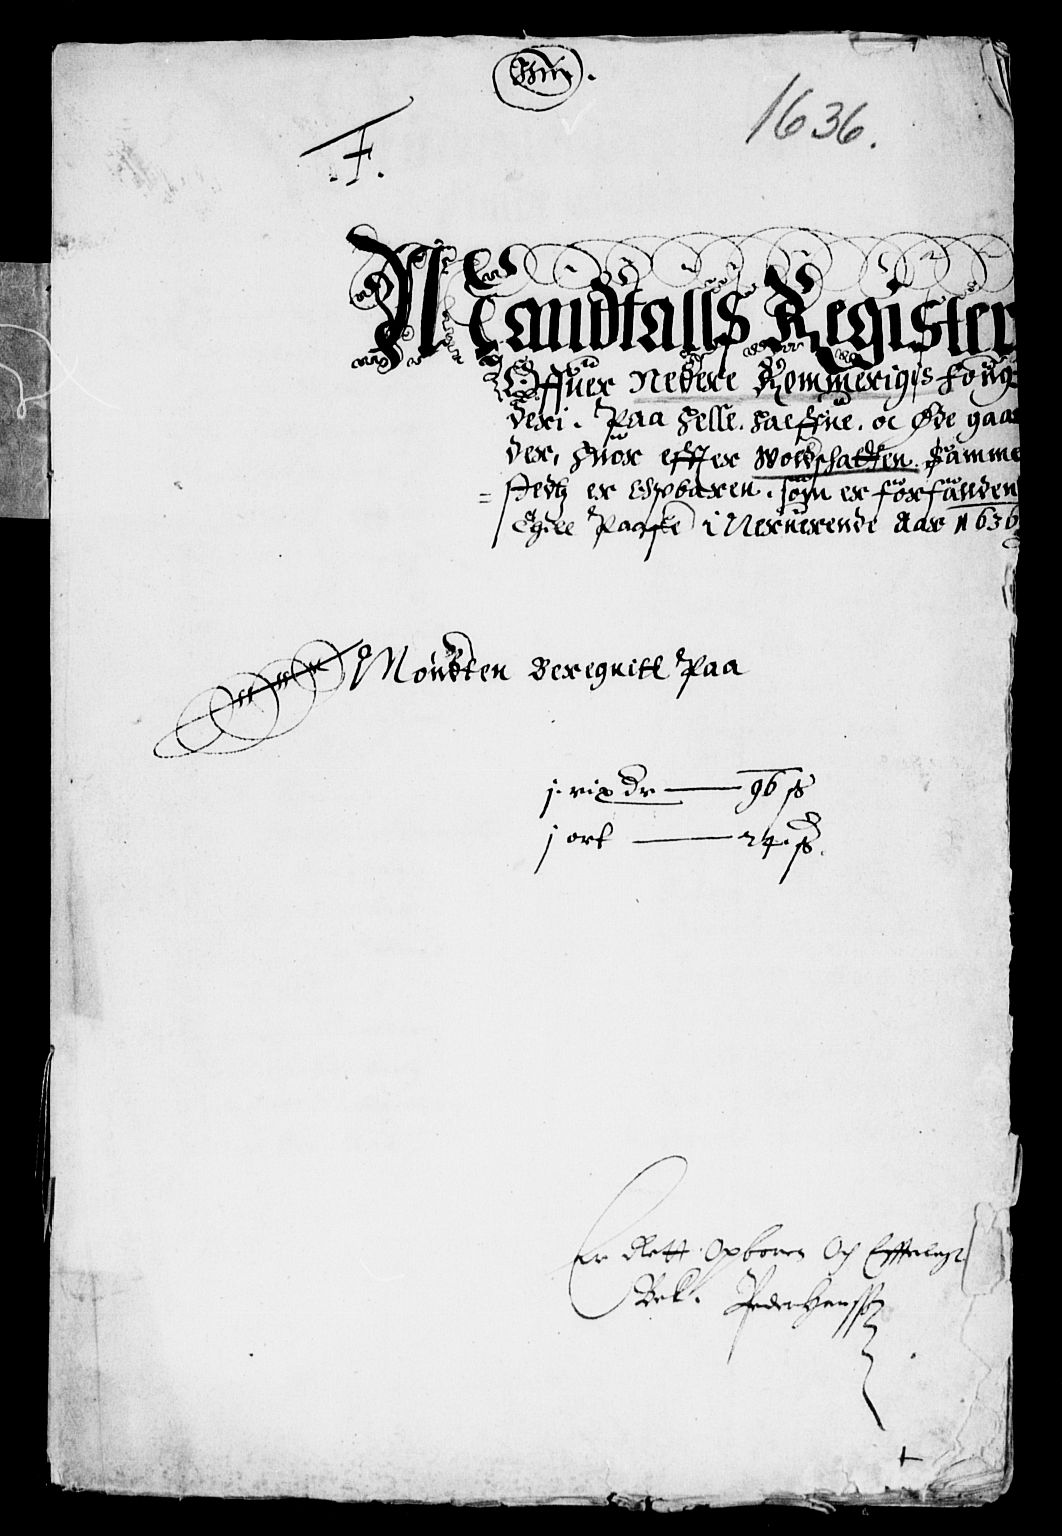 1636.
F.
Mandtalls Register
Offuer Nedere Rommerigis foug
deri. Paa Helle. Haeffue. oc Øde gaar
der, huor effter woldschatten Samme
stedtz er opbaren. som er forfanden
Epter Paaske i Neruerende Aar 1636
Mőndten beregnitt Paa
j. rix dr — 96 ß
j ort — 24. ß.
Er Rett Opboren Och
Bek. Peder Hanssø